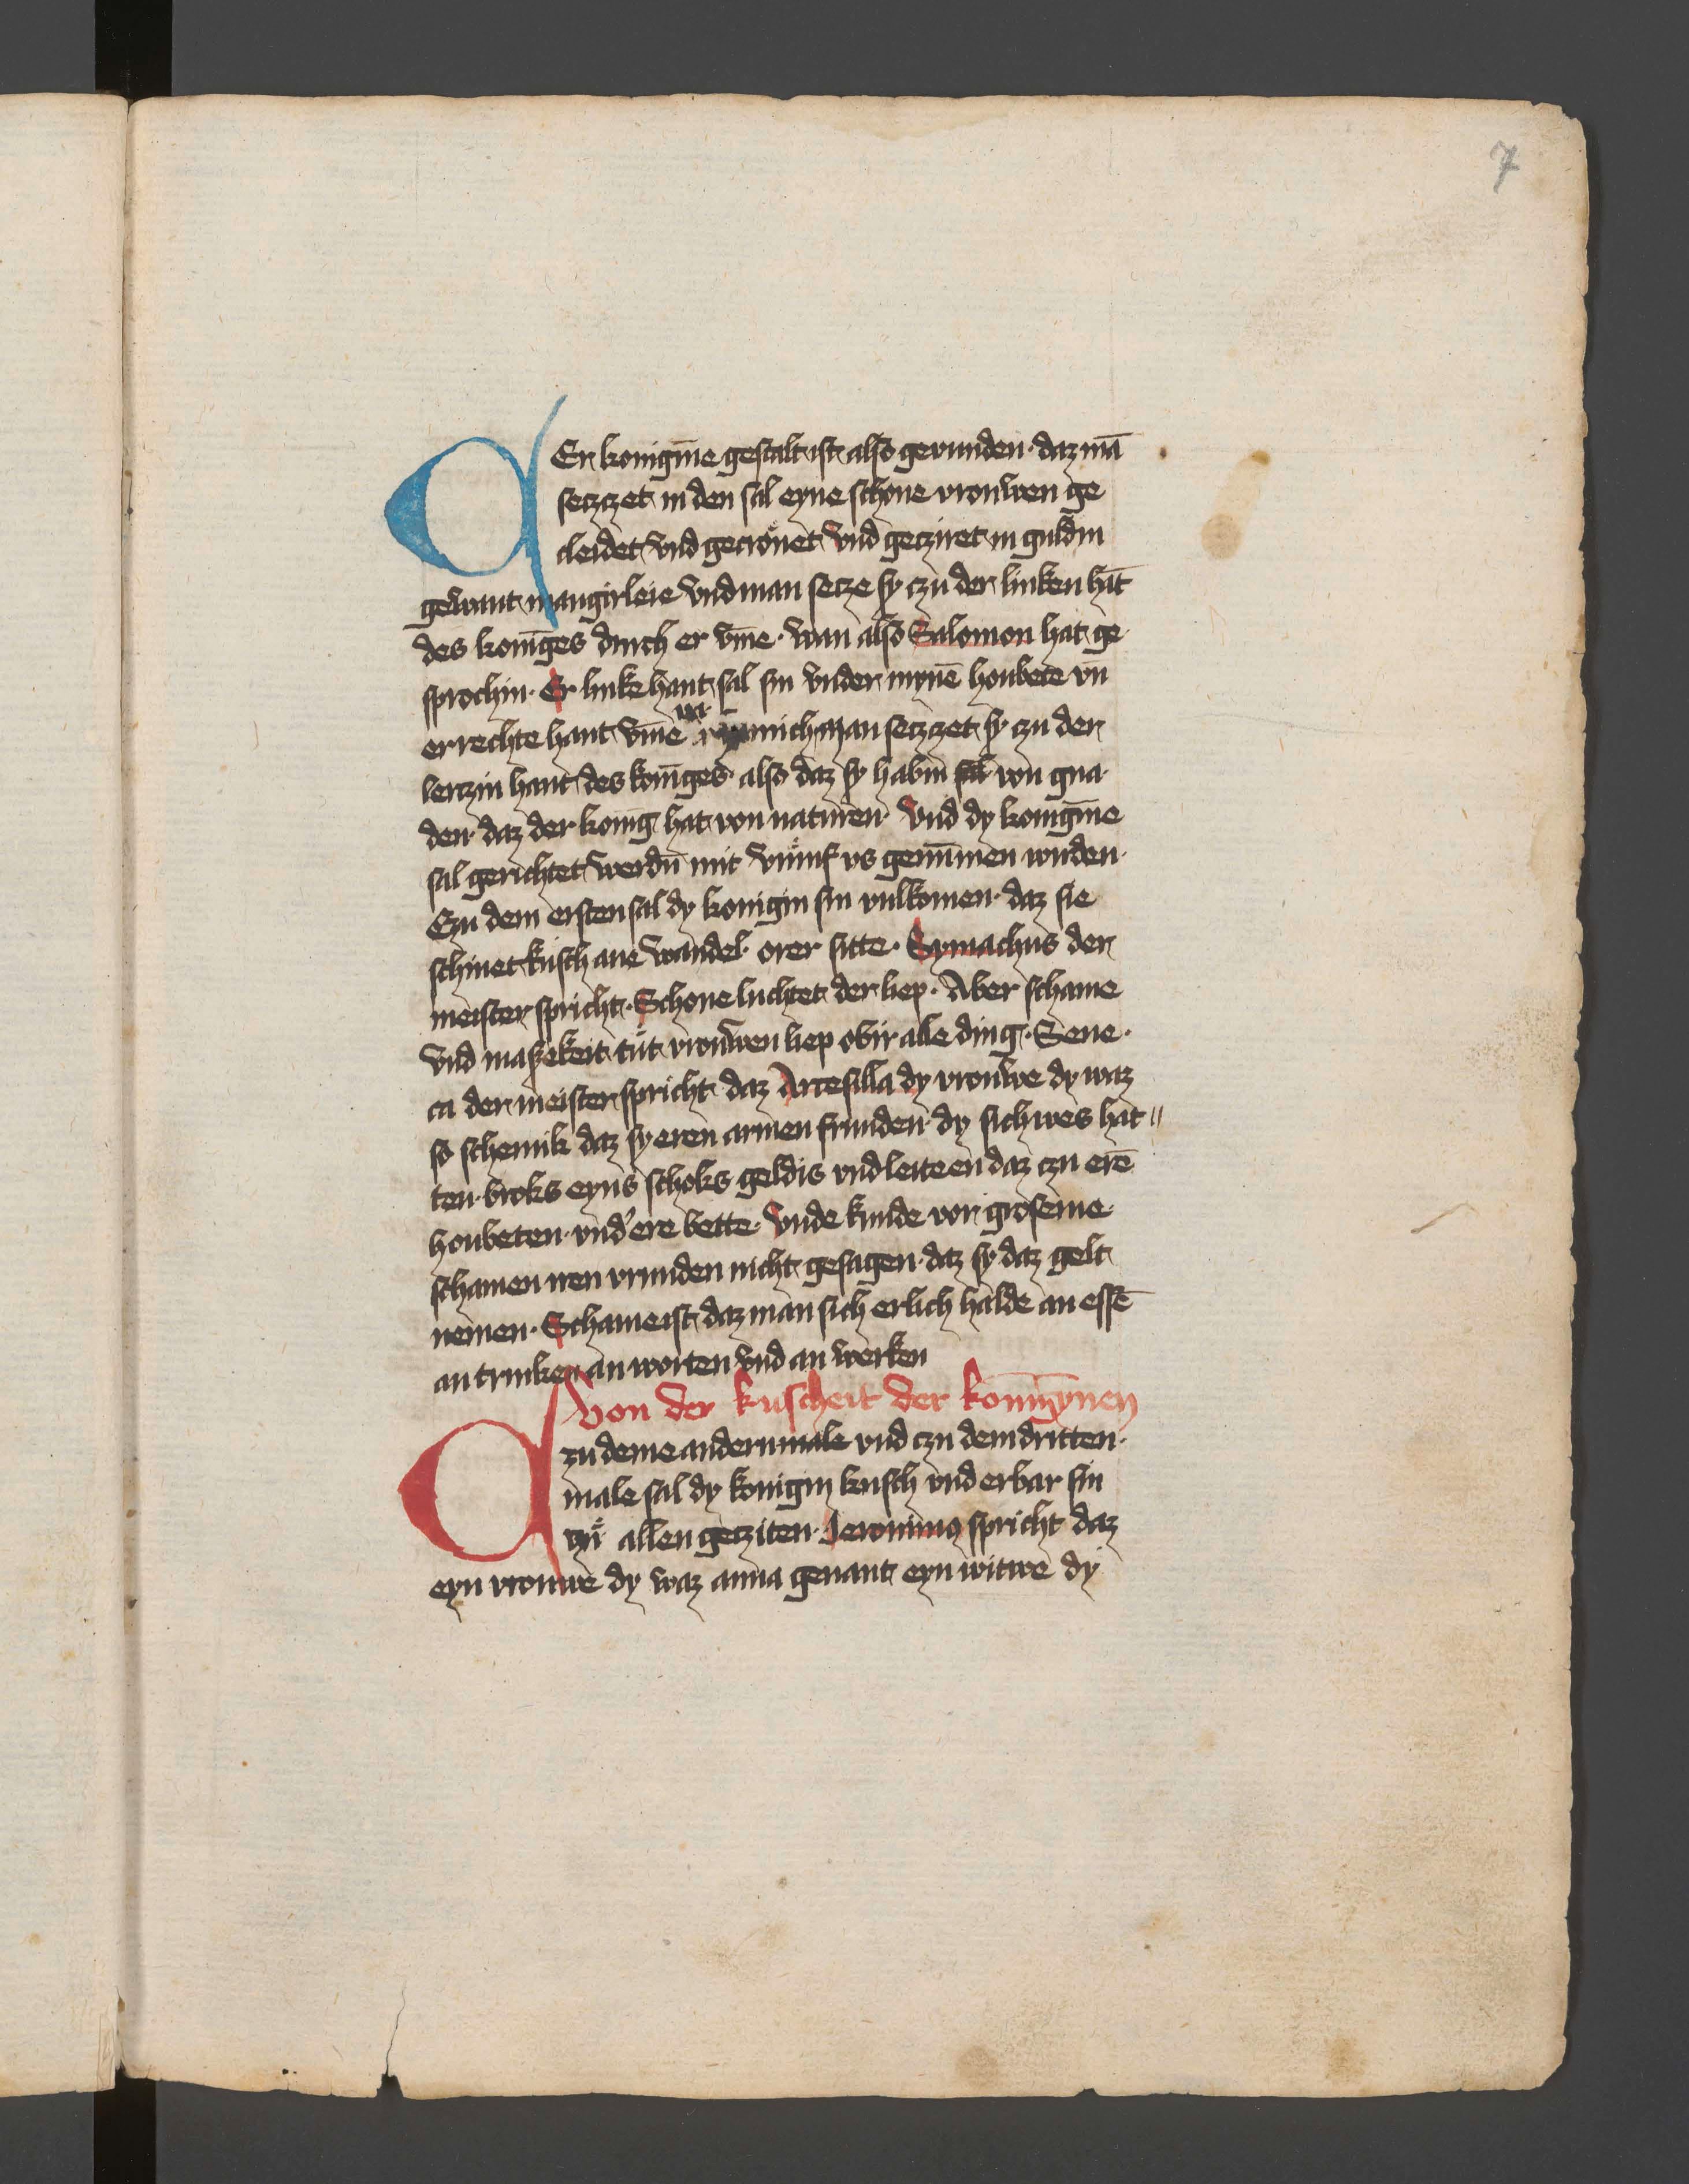 7
DEr konigīne gestalt ist also gevunden · daz mā
seczczet in den sal eyne schone vrouwen ge
cleidet vnd gecrönet vnd gecziret in guldin
gewant mangirleie vnd man secze sy czu der linken hāt
des konīges durch er vme · wan also Salomon hat ge
sprochin · Er linke hant sal sin vnder mynē houbete vn̄
er rechte hant vme mich man seczczet sy czu der
lenczin hant des konīges also daz sy habin sal von gna
den · daz der konig hat von naturen · vnd dy konigīne
sal gerichtet werdin mit vumf vs genūmen wuden ·
Czu dem ersten sal dy konigin sin vulkomen · daz sie
schinet kusch ane wandel orer sitte · Symachus der
meister spricht · Schone luchtet der liep · Aber schame
vnd maßekeit tut vrouwen liep obir alle ding · Sene ·
ca der meister spricht daz Artesilla dy vrouwe dy waz
so schemik daz sy eren armen frunden dy sich wes hat //
ten broks eyns schoks geldis vnd leite en daz czu erē
houbeten · vnd ere bette · vnde kunde vor groseme
schamen iren vrunden nicht gesagen · daz sy daz gelt
nemen · Schame ist daz man sich erlich halde an essē
an trinken an worten vnd an werken
Von der kuscheit der konīgynen
Czu deme andern male vnd czu dem dritten ·
male sal dy konigin kusch vnd erbar sin
czu allen gecziten · Jeronimus spricht daz
eyn vrouwe dy waz anna genant eyn witwe dy